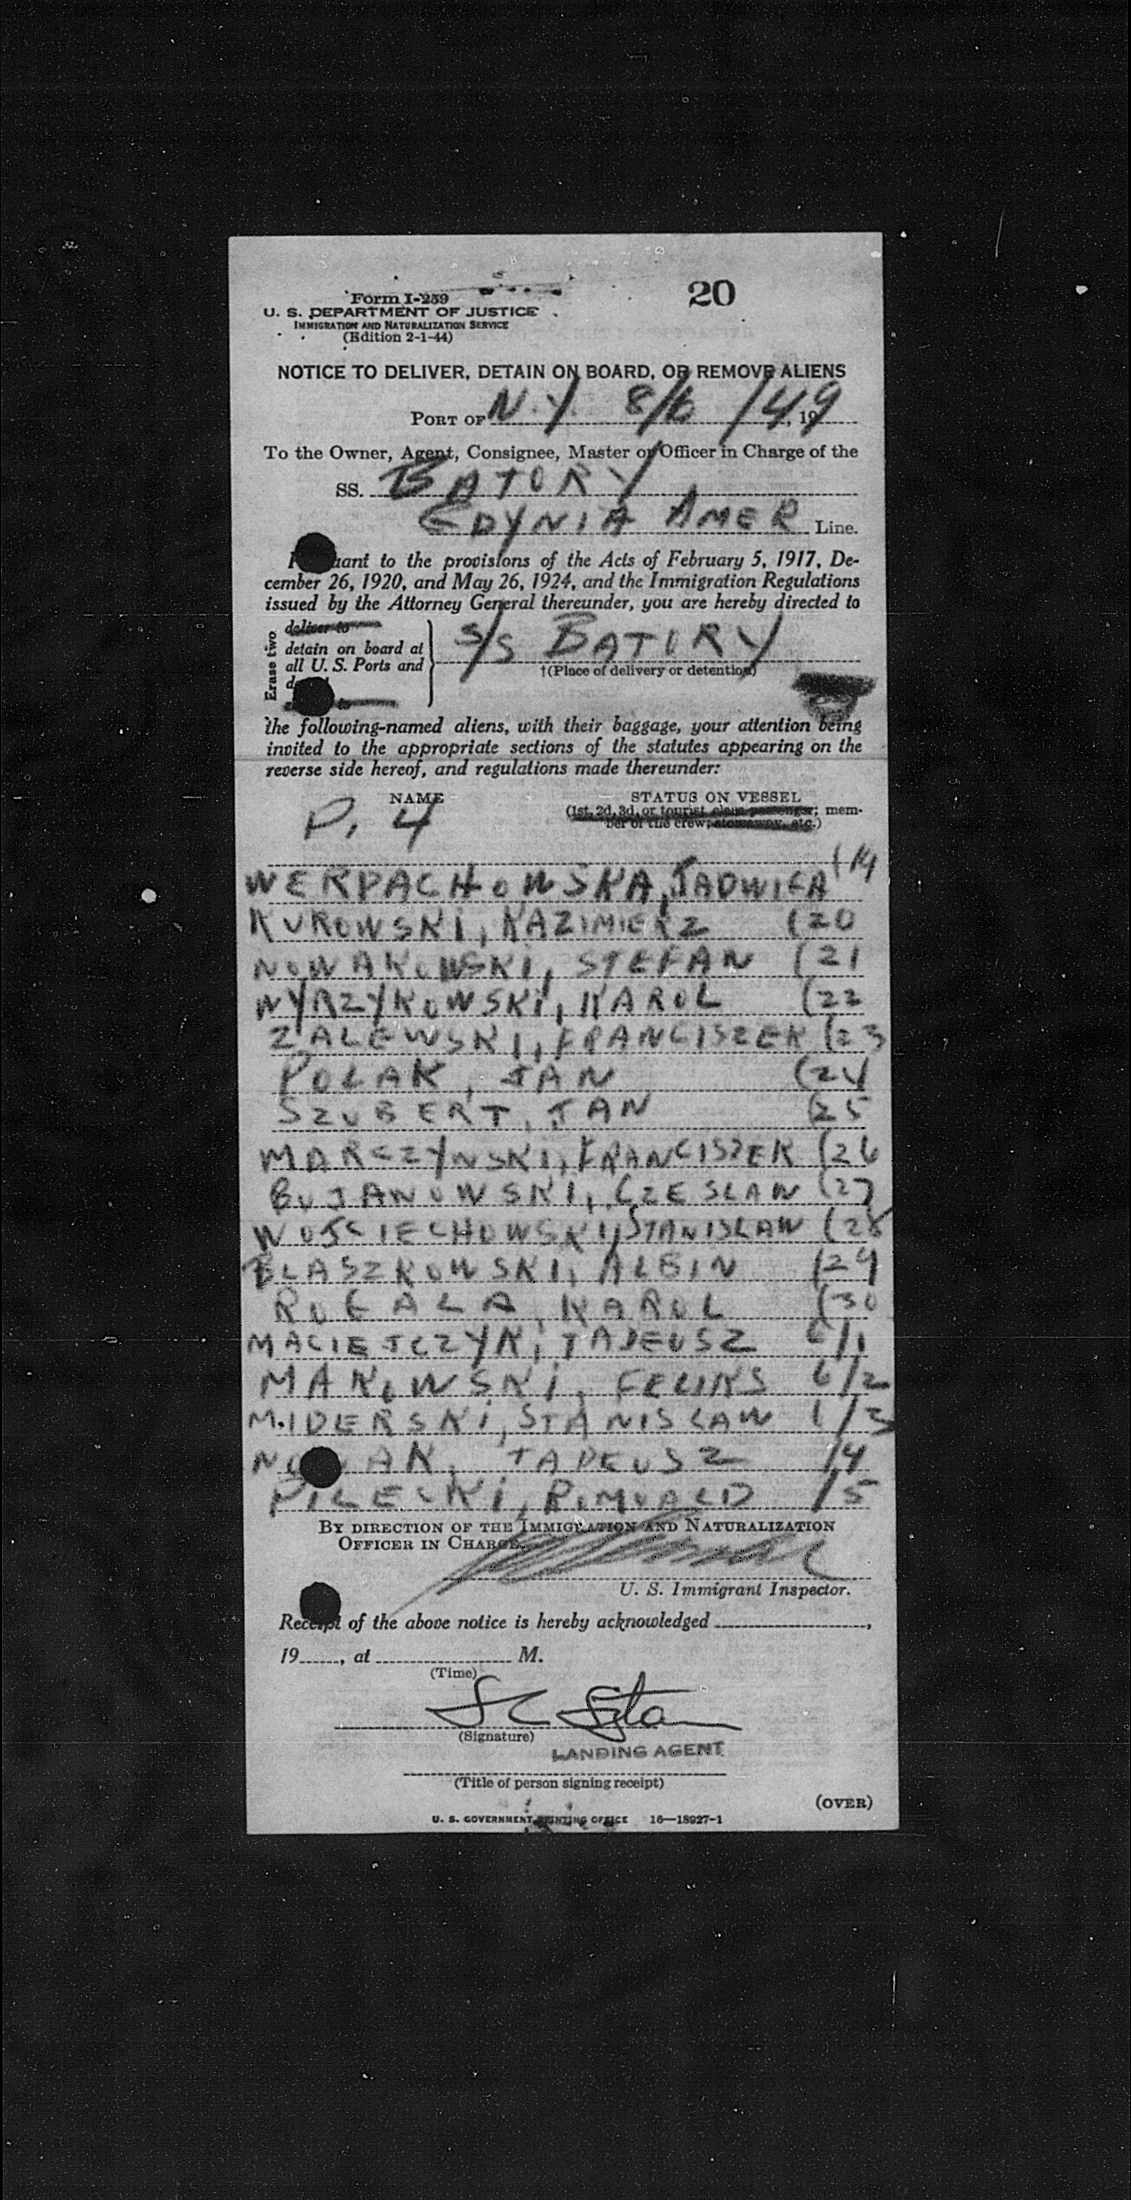 20
Form I-259
U. S. DEPARTMENT OF JUSTICE
IMMIGRATION AND NATURALIZATION SERVICE
(Edition 2-1-44)
NOTICE TO DELIVER, DETAIN ON BOARD, OR REMOVE ALIENS
PORT OF N.Y. 8/6/49, 19
To the Owner, Agent, Consignee, Master or Officer in Charge of the
SS. BATORY
GDYNIA AMER Line.
to the provisions of the Acts of February 5, 1917, De-
cember 26, 1920, and May 26, 1924, and the Immigration Regulations
issued by the Attorney General thereunder, you are hereby directed to
Erase two
deliver to
detain on board at
all U. S. Ports and
S/S BATORY
†(Place of delivery or detention)
the following-named aliens, with their baggage, your attention being
invited to the appropriate sections of the statutes appearing on the
reverse side hereof, and regulations made thereunder:
NAME
STATUS ON VESSEL
P. 4
(1st, 2d, 3d, or tourist class passenger; mem-
ber of the crew; stowaway, etc.)
WERPACHOWSKA, JADWIGA (19
KUROWSKI, KAZIMIERZ (20
NOWAKOWSKI, STEFAN (21
WYRZYKOWSKI, KAROL (22
ZALEWSKI, FRANCISZEK (23
POLAK, JAN (24
SZUBERT, JAN (25
MARCZYNSKI, FRANCISZEK (26
BUJANOWSKI, CZESLAW (27
WOJCIECHOWSKI, STANISLAW (28
BLASZKOWSKI, ALBIN (29
ROGALA, KAROL (30
MACIEJCZYK, TADEUSZ 6/1
MAKOWSKI, FELIKS 6/2
MIDERSKI, STANISLAW /3
NOWAK, TADEUSZ /4
PILECKI, ROMUALD /5
BY DIRECTION OF THE IMMIGRATION AND NATURALIZATION
OFFICER IN CHARGE.
U. S. Immigrant Inspector.
Receipt of the above notice is hereby acknowledged ,
19 , at M.
(Time)
(Signature)
LANDING AGENT
(Title of person signing receipt)
(OVER)
U. S. GOVERNMENT PRINTING OFFICE 16—18927-1